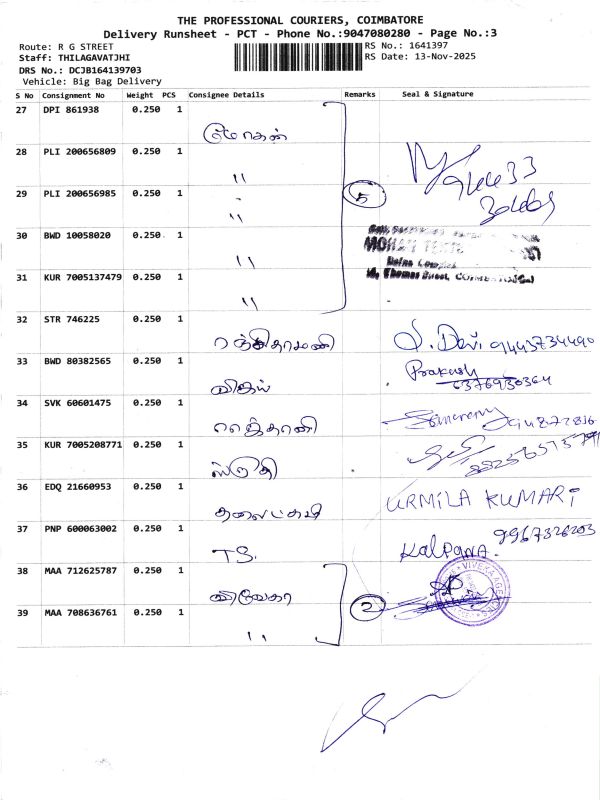 THE PROFESSIONAL COURIERS, COIMBATORE
Delivery Runsheet - PCT - Phone No.:9047080280 - Page No.:3
Route: R G STREET
RS No.: 1641397
Staff: THILAGAVATJHI
RS Date: 13-Nov-2025
DRS No.: DCJB164139703
Vehicle: Big Bag Delivery
S No Consignment No Weight PCS Consignee Details Remarks Seal & Signature
27 DPI 861938 0.250 1
மோகன்
28 PLI 200656809 0.250 1
"
29 PLI 200656985 0.250 1 5
"
30 BWD 10058020 0.250 1
"
MOHAN
31 KUR 7005137479 0.250 1
Thomas Street, COIMBATORE
"
32 STR 746225 0.250 1
S. Devi 9443734490
33 BWD 80382565 0.250 1 Prakash
விஜய் 6376930364
34 SVK 60601475 0.250 1
35 KUR 7005208771 0.250 1
ஸ்ருதி
36 EDQ 21660953 0.250 1 URMILA KUMARI
37 PNP 600063002 0.250 1 9967326203
T.S. Kalpana.
38 MAA 712625787 0.250 1
விவேகா 2
39 MAA 708636761 0.250 1
"